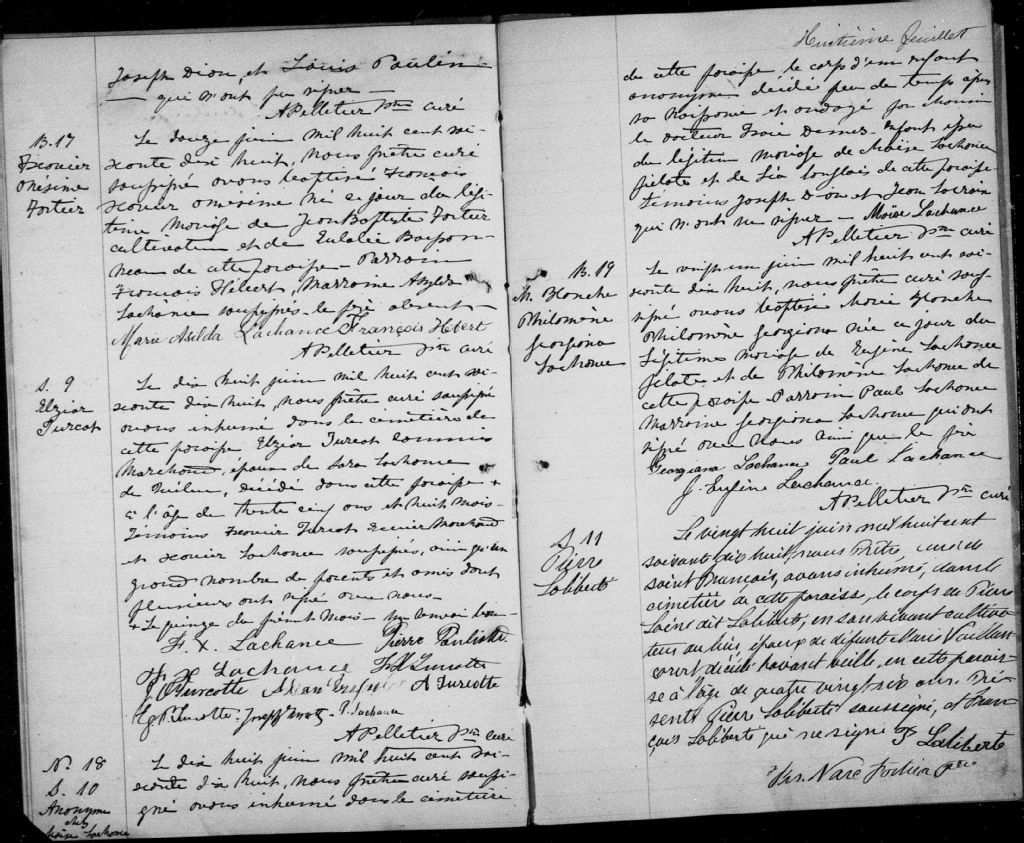 Joseph Dion, et Louis Paulin
— qui n'ont pu signer —
A Pelletier Ptre curé
B. 17
Xavier
Onésime
Fortier
Le douze juin mil huit cent soi-
xante dix huit, nous prêtre curé
soussigné avons baptisé François
Xavier Onésime né ce jour du légi-
time mariage de Jean Baptiste Fortier
cultivateur et de Eulalie Boisson-
neau de cette paroisse — Parrain
François Hébert, Marraine Asilda
Lachance soussignés — le père absent —
Marie Asilda Lachance François Hébert
A Pelletier Ptre curé
S. 9
Elzior
Turcot
Le dix huit juin mil huit cent soi-
xante dix huit, nous prêtre curé soussigné
avons inhumé dans le cimetière de
cette paroisse Elzior Turcot commis
Marchand, époux de Sara Lachance
de décédé dans cette paroisse +
à l'âge de trente cinq ans et huit mois
Témoins Xavier Turcot
et Xavier Lachance soussignés, ainsi qu'un
grand nombre de parents et amis dont
plusieurs ont signé avec nous —
+ Le quinze du présent mois — un renvoi bon —
F. X. Lachance Pierre
F X Lachance Turcotte
Turcotte A Turcotte
Turcotte Lachance
A Pelletier Ptre curé
N. 18
S. 10
Anonyme
chez
Moïse Lachance
Le dix huit juin mil huit cent soi-
xante dix huit, nous prêtre curé soussi-
gné avons inhumé dans le cimetière
Huitième feuillet
de cette paroisse le corps d'un enfant
anonyme décédé peu de temps après
sa naissance et ondoyé par Monsieur
le docteur enfant issu
du légitime mariage de Moïse Lachance
pilote et de Léa Langlais de cette paroisse
témoins Joseph Dion et Jean
qui n'ont su signer — Moïse Lachance
A Pelletier Ptre curé
B. 19
M. Blanche
Philomène
Georgiana
Lachance
Le vingt un juin mil huit cent soi-
xante dix huit, nous prêtre curé sous-
signé avons baptisé Marie Blanche
Philomène Georgiana née ce jour du
légitime mariage de Eugène Lachance
pilote et de Philomène Lachance de
cette paroisse Parrain Paul Lachance
Marraine Georgiana Lachance qui ont
signé avec nous ainsi que le père
Georgiana Lachance Paul Lachance
J. Eugène Lachance.
A Pelletier Ptre curé
S. 11
Pierre
Laliberté
Le vingt huit juin mil huit cent
soixante dix huit, nous Prêtre, curé de
saint François, avons inhumé, dans le
cimetière de cette paroisse, le corps de Pierre
Lainé dit Laliberté, en son vivant cultiva-
teur du lieu, époux de défunte Marie Vaillan-
court, décédé l'avant veille, en cette parois-
se à l'âge de quatre vingt six ans. Pré-
sents Pierre Laliberté soussigné, et Fran-
çois Laliberté qui ne signe Ps Laliberté
Narc Fortier ptre